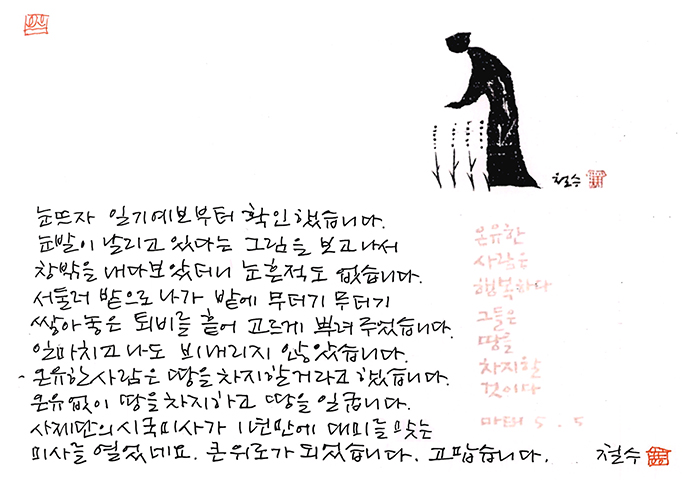 철수
눈뜨자 일기예보부터 확인했습니다.
눈발이 날리고 있다는 그림을 보고나서
창밖을 내다보았더니 눈흔적도 없습니다.
서둘러 밭으로 나가 밭에 무더기 무더기
쌓아놓은 퇴비를 흩어 고르게 뿌려주었습니다.
일마치고 나도 비내리지 않았습니다.
- 온유한 사람은 땅을 차지할거라고 했습니다.
온유없이 땅을 차지하고 땅을 일굽니다.
사제단의 시국미사가 11년만에 대미를 맞는
미사를 열었네요. 큰 위로가 되었습니다. 고맙습니다.
온유한
사람은
행복하다
그들은
땅을
차지할
것이다
마태 5.5
철수